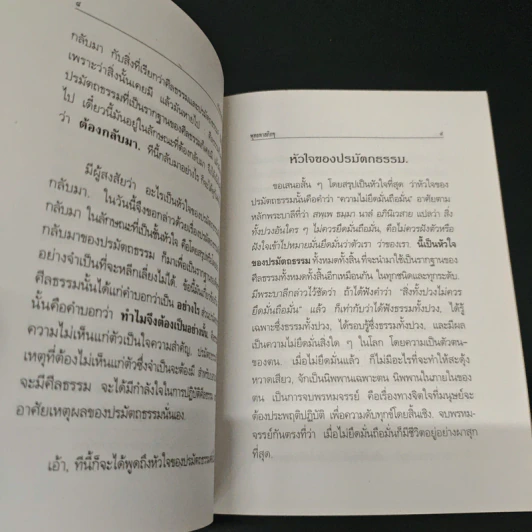 ๔
กลับมา กับสิ่งที่เรียกว่าศีลธรรมและปรมัตถ
เพราะว่าสิ่งนั้นเคยมี แล้วมันหายไป
ปรมัตถธรรมที่เป็นรากฐานของศีลธรรม
ไป เดี๋ยวนี้มันอยู่ในลักษณะที่ต้องกลับมา
ว่า ต้องกลับมา. ทีนี้กลับมาอย่างไร
มีผู้สงสัยว่า อะไรเป็นหัวใจของปรมัตถ
กลับมา. ในวันนี้จึงขอกล่าวด้วยเรื่อง
กลับมา ในลักษณะที่เป็นชั้นหัวใจ คือโดย
กลับมาของปรมัตถธรรม ก็มาเพื่อเป็นรากฐาน
อย่างจำเป็นที่จะหลีกเลี่ยงไม่ได้.
ศีลธรรมนั้นได้แก่คำบอกว่าเป็น อย่างไร
นั้นคือคำบอกว่า ทำไมจึงต้องเป็นอย่างนั้น
ความไม่เห็นแก่ตัวเป็นใจความสำคัญ, ปรมัตถ
เหตุที่ต้องไม่เห็นแก่ตัวซึ่งจำเป็นจะต้องมี
จะมีศีลธรรม จะได้มีกำลังใจในการปฏิบัติศีลธรรม
อาศัยเหตุผลของปรมัตถธรรมนั่นเอง.
เอ้า, ทีนี้ก็จะได้พูดถึงหัวใจของปรมัตถธรรม
พุทธทาสภิกขุ ๕
หัวใจของปรมัตถธรรม.
ขอเสนอสั้น ๆ โดยสรุปเป็นหัวใจที่สุด ว่าหัวใจของ
ปรมัตถธรรมนั้นคือคำว่า "ความไม่ยึดมั่นถือมั่น" อาศัยตาม
หลักพระบาลีที่ว่า สพฺเพ ธมฺมา นาลํ อภินิเวสาย แปลว่า สิ่ง
ทั้งปวงอันใคร ๆ ไม่ควรยึดมั่นถือมั่น, คือไม่ควรฝังตัวหรือ
ฝังใจเข้าไปหมายมั่นยึดมั่นว่าตัวเรา ว่าของเรา. นี้เป็นหัวใจ
ของปรมัตถธรรม ทั้งหมดทั้งสิ้น ที่จะนำมาใช้เป็นรากฐานของ
ศีลธรรมทั้งหมดทั้งสิ้นอีกเหมือนกัน ในทุกชนิดและทุกระดับ.
มีพระบาลีกล่าวไว้ชัดว่า ถ้าได้ฟังคำว่า "สิ่งทั้งปวงไม่ควร
ยึดมั่นถือมั่น" แล้ว ก็เท่ากับว่าได้ฟังธรรมทั้งปวง, ได้รู้
เฉพาะซึ่งธรรมทั้งปวง, ได้รอบรู้ซึ่งธรรมทั้งปวง, และมีผล
เป็นความไม่ยึดมั่นสิ่งใด ๆ ในโลก โดยความเป็นตัวตน-
ของตน. เมื่อไม่ยึดมั่นแล้ว ก็ไม่มีอะไรที่จะทำให้สะดุ้ง
หวาดเสียว, จักเป็นนิพพานเฉพาะตน นิพพานในภายในของ
ตน เป็นการจบพรหมจรรย์ คือเรื่องทางจิตใจที่มนุษย์จะ
ต้องประพฤติปฏิบัติ เพื่อความดับทุกข์โดยสิ้นเชิง, จบพรหม-
จรรย์กันตรงที่ว่า เมื่อไม่ยึดมั่นถือมั่นก็มีชีวิตอยู่อย่างผาสุก
ที่สุด.